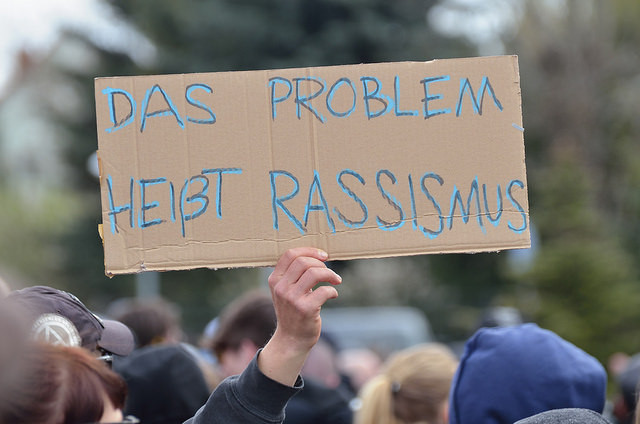 DAS PROBLEM
HEIẞT RASSISMUS